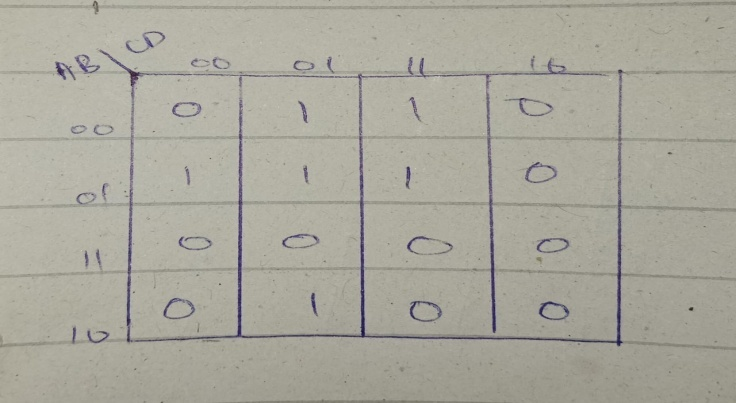 AB CD 00 01 11 10
00 0 1 1 0
01 1 1 1 0
11 0 0 0 0
10 0 1 0 0